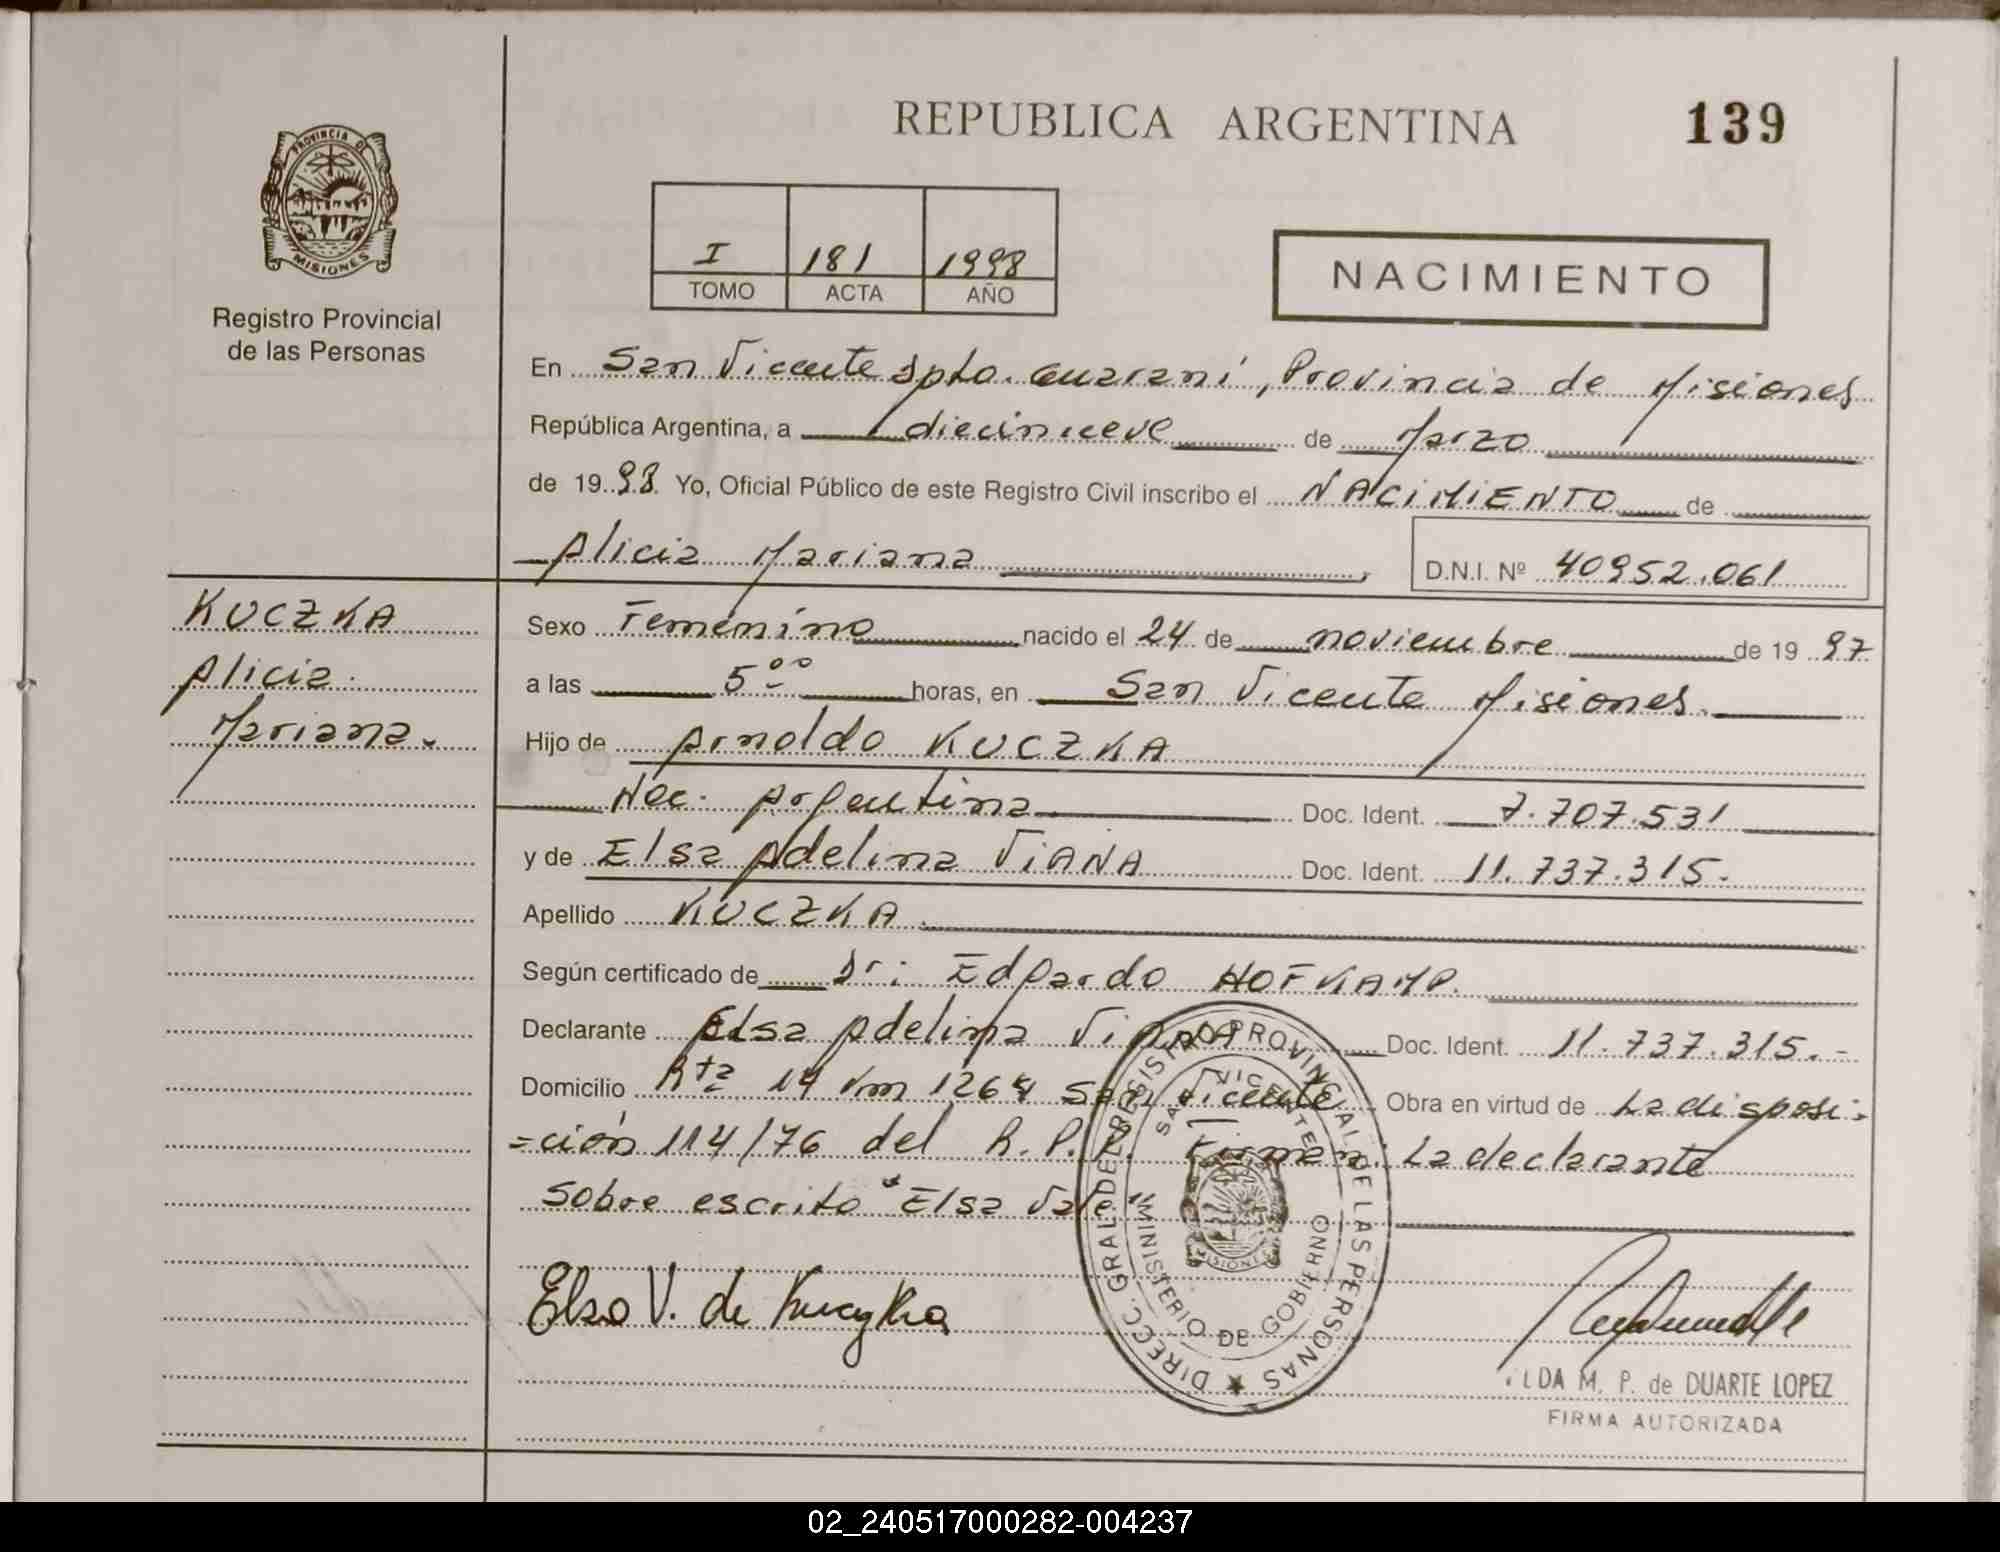 REPUBLICA ARGENTINA
139
PROVINCIA DE
MISIONES
Registro Provincial
de las Personas
I 181 1998
TOMO ACTA AÑO
NACIMIENTO
En San Vicente Dpto. Guaraní, Provincia de Misiones
República Argentina, a diecinueve de Marzo
de 1998 Yo, Oficial Público de este Registro Civil inscribo el NACIMIENTO de
Alicia Mariana
D.N.I. Nº 40952.061
KUCZKA
Alicia
Mariana.
Sexo Femenino nacido el 24 de noviembre de 1997
a las 5 00 horas, en San Vicente Misiones.
Hijo de Arnoldo KUCZKA
Nac. Argentina Doc. Ident. 7.707.531
y de Elsa Adelina VIANA Doc. Ident. 11.737.315.
Apellido KUCZKA
Según certificado de Dr: Edgardo HOFKAMP.
Declarante Elsa Adelina Viana Doc. Ident. 11.737.315.-
Domicilio Rta 14 Km 1264 San Vicente Obra en virtud de La disposi-
=ción 114/76 del R.P.P. Firman: La declarante
sobre escrito "Elsa Vale"
Elsa V. de Kuczka
DIRECC. GRAL. DEL REGISTRO PROVINCIAL DE LAS PERSONAS
SAN VICENTE
MINISTERIO DE GOBIERNO
MISIONES
LDA M. P. de DUARTE LOPEZ
FIRMA AUTORIZADA
02_240517000282-004237